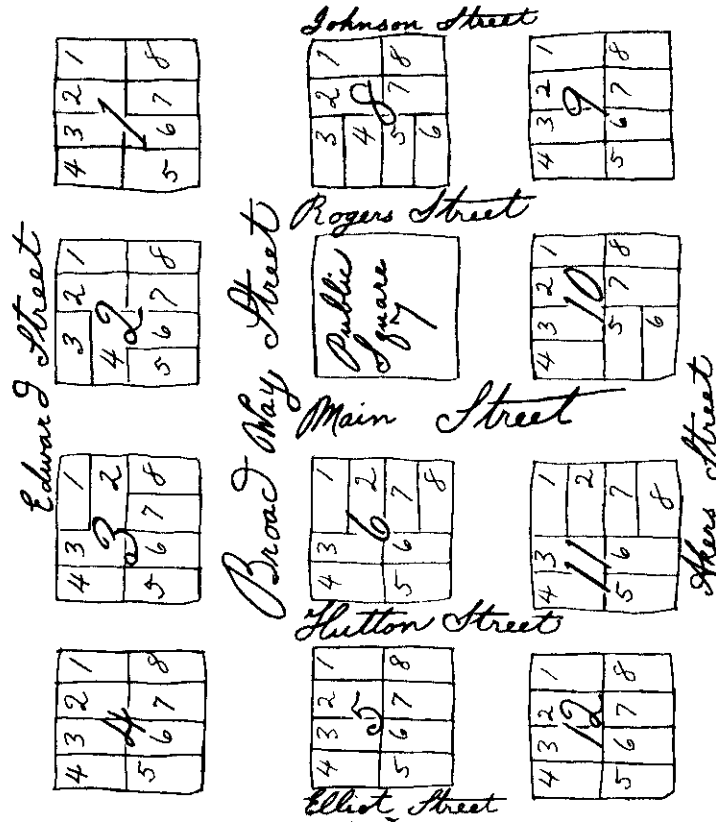 Johnson Street
1 2 3 4 5 6 7 8
1
1 2 3 4 5 6 7 8
8
1 2 3 4 5 6 7 8
9
Rogers Street
Edward Street
1 2 3 4 5 6 7 8
2
Broad Way Street
Public
Square
7
1 2 3 4 5 6 7 8
10
Main Street
1 2 3 4 5 6 7 8
3
1 2 3 4 5 6 7 8
6
1 2 3 4 5 6 7 8
11
Akers Street
Hutton Street
1 2 3 4 5 6 7 8
4
1 2 3 4 5 6 7 8
5
1 2 3 4 5 6 7 8
12
Elliot Street